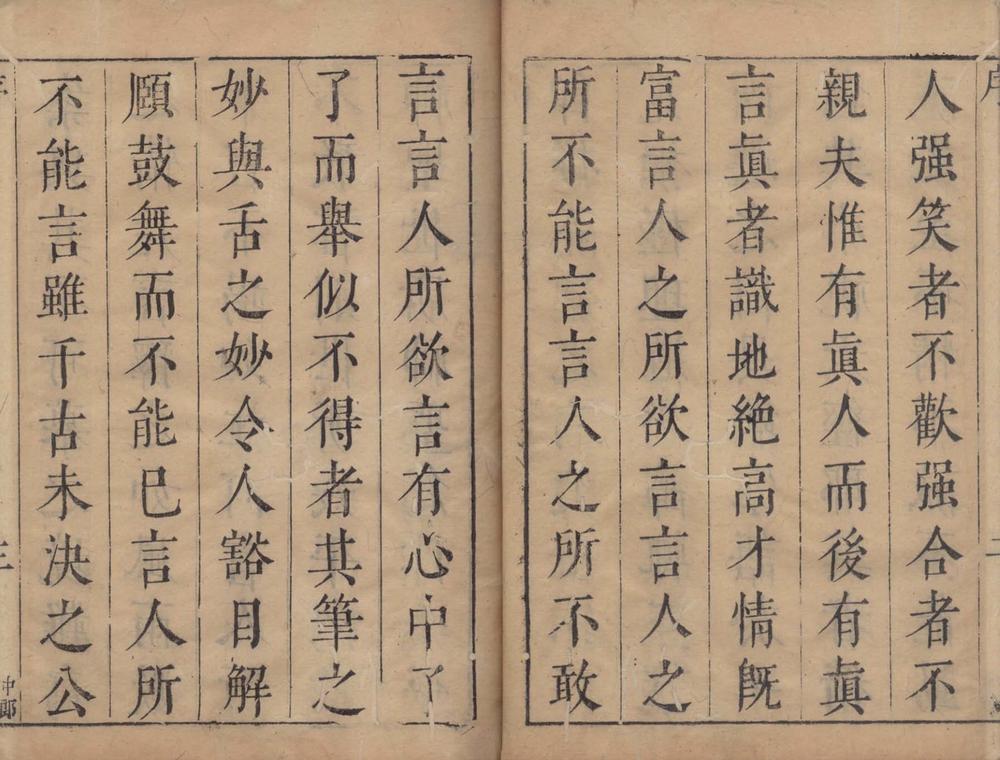 人强笑者不歡强合者不
親夫惟有眞人而後有眞
言眞者識地絶高才情旣
富言人之所欲言言人之
所不能言言人之所不敢
言言人所欲言有心中了
了而舉似不得者其筆之
妙與舌之妙令人豁目解
頤鼓舞而不能已言人所
不能言雖千古未決之公
三
中郎